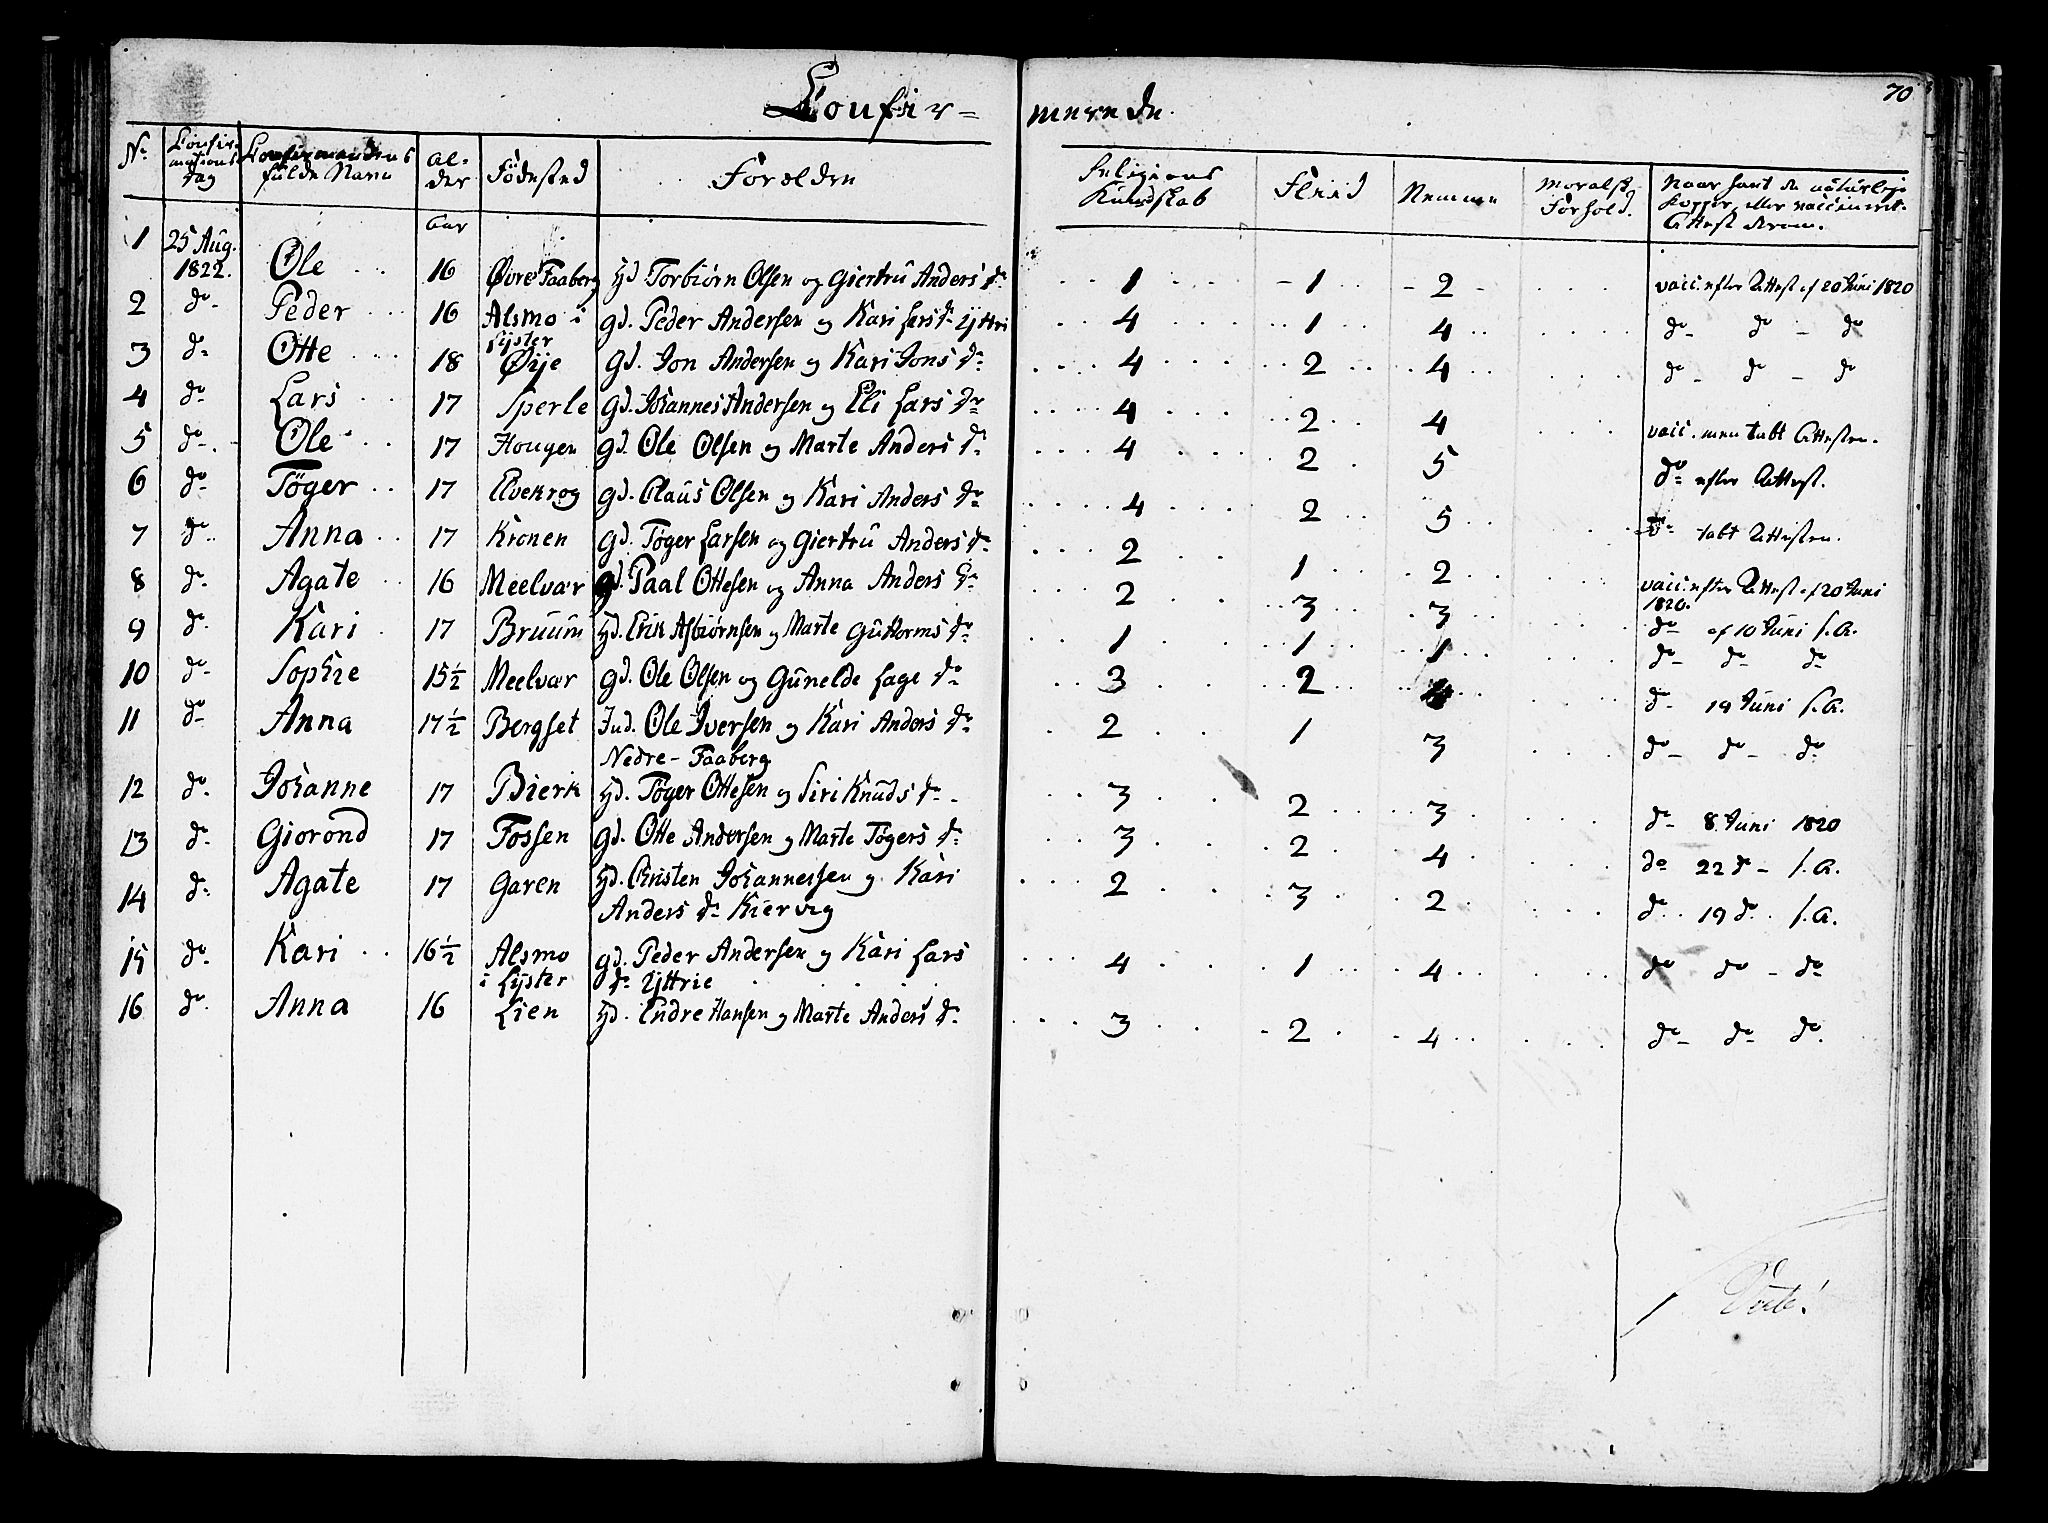 70
Confir= merende.
No Confirmations Dag Confirmandens fulde Navn Alder Fødested Forældre Religions Kundskab Fliid Nemme Moralsk Forhold. Naar havt de naturlige Kopper, eller vaccineret. Attest derom.
Aar
1 25 Aug. 1822. Ole 16 Øvre Faaberg Hd. Torbiørn Olsen og Giertru Anders dr 1 1 2 vacc. efter Attest af 20 Juni 1820
2 do Peder 16 Alsmo i Lyster gd. Peder Andersen og Kari Lars dr Yttri 4 1 4 do do do
3 do Otte 18 Øije gd. Jon Andersen og Kari Jons dr 4 2 4 do do do
4 do Lars 17 Sperle gd. Johannes Andersen og Eli Lars dr 4 2 4 vacc. men tabt Attesten.
5 do Ole 17 Hougen gd. Ole Olsen og Marte Anders dr 4 2 5 do efter Attest.
6 do Tøger 17 Elvekrog gd. Claus Olsen og Kari Anders dr 4 2 5 do tabt Attesten.
7 do Anna 17 Kronen gd. Tøger Larsen og Giertru Anders dr 2 1 2 vacc. efter Attest af 20 Juni 1820.
8 do Agate 16 Meelvær gd. Paal Ottesen og Anna Anders dr 2 3 3 do af 10 Juni s.A.
9 do Kari 17 Bruum Hd. Erik Asbiørnsen og Marte Guttorms dr 1 1 1 do do do
10 do Sophie 15½ Meelvær gd. Ole Olsen og Gunelde Lage dr 3 2 4 do 19 Juni s.A.
11 do Anna 17½ Bergset Ind. Ole Iversen og Kari Anders dr 2 1 3 do do do
Nedre-Faaberg
12 do Johanne 17 Bierk Hd. Tøger Ottesen og Siri Knuds dr 3 2 3 do 8 Juni 1820
13 do Giorond 17 Fossen gd. Otte Andersen og Marte Tøgers dr 3 2 4 do 22 do s.A.
14 do Agate 17 Garen Hd. Christen Johannessen og Kari Anders dr Kiervig 2 3 2 do 19 do s.A.
15 do Kari 16½ Alsmo i Lyster gd. Peder Andersen og Kari Lars dr Yttrie 4 1 4 do do do
16 do Anna 16 Lien Hd. Endre Hansen og Marte Anders dr 3 2 4 do do do